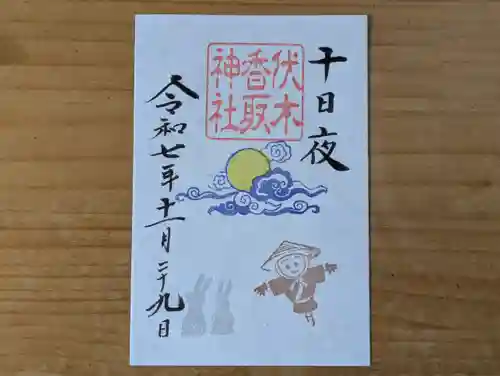 十日夜
伏木
香取
神社
令和七年十一月二十九日